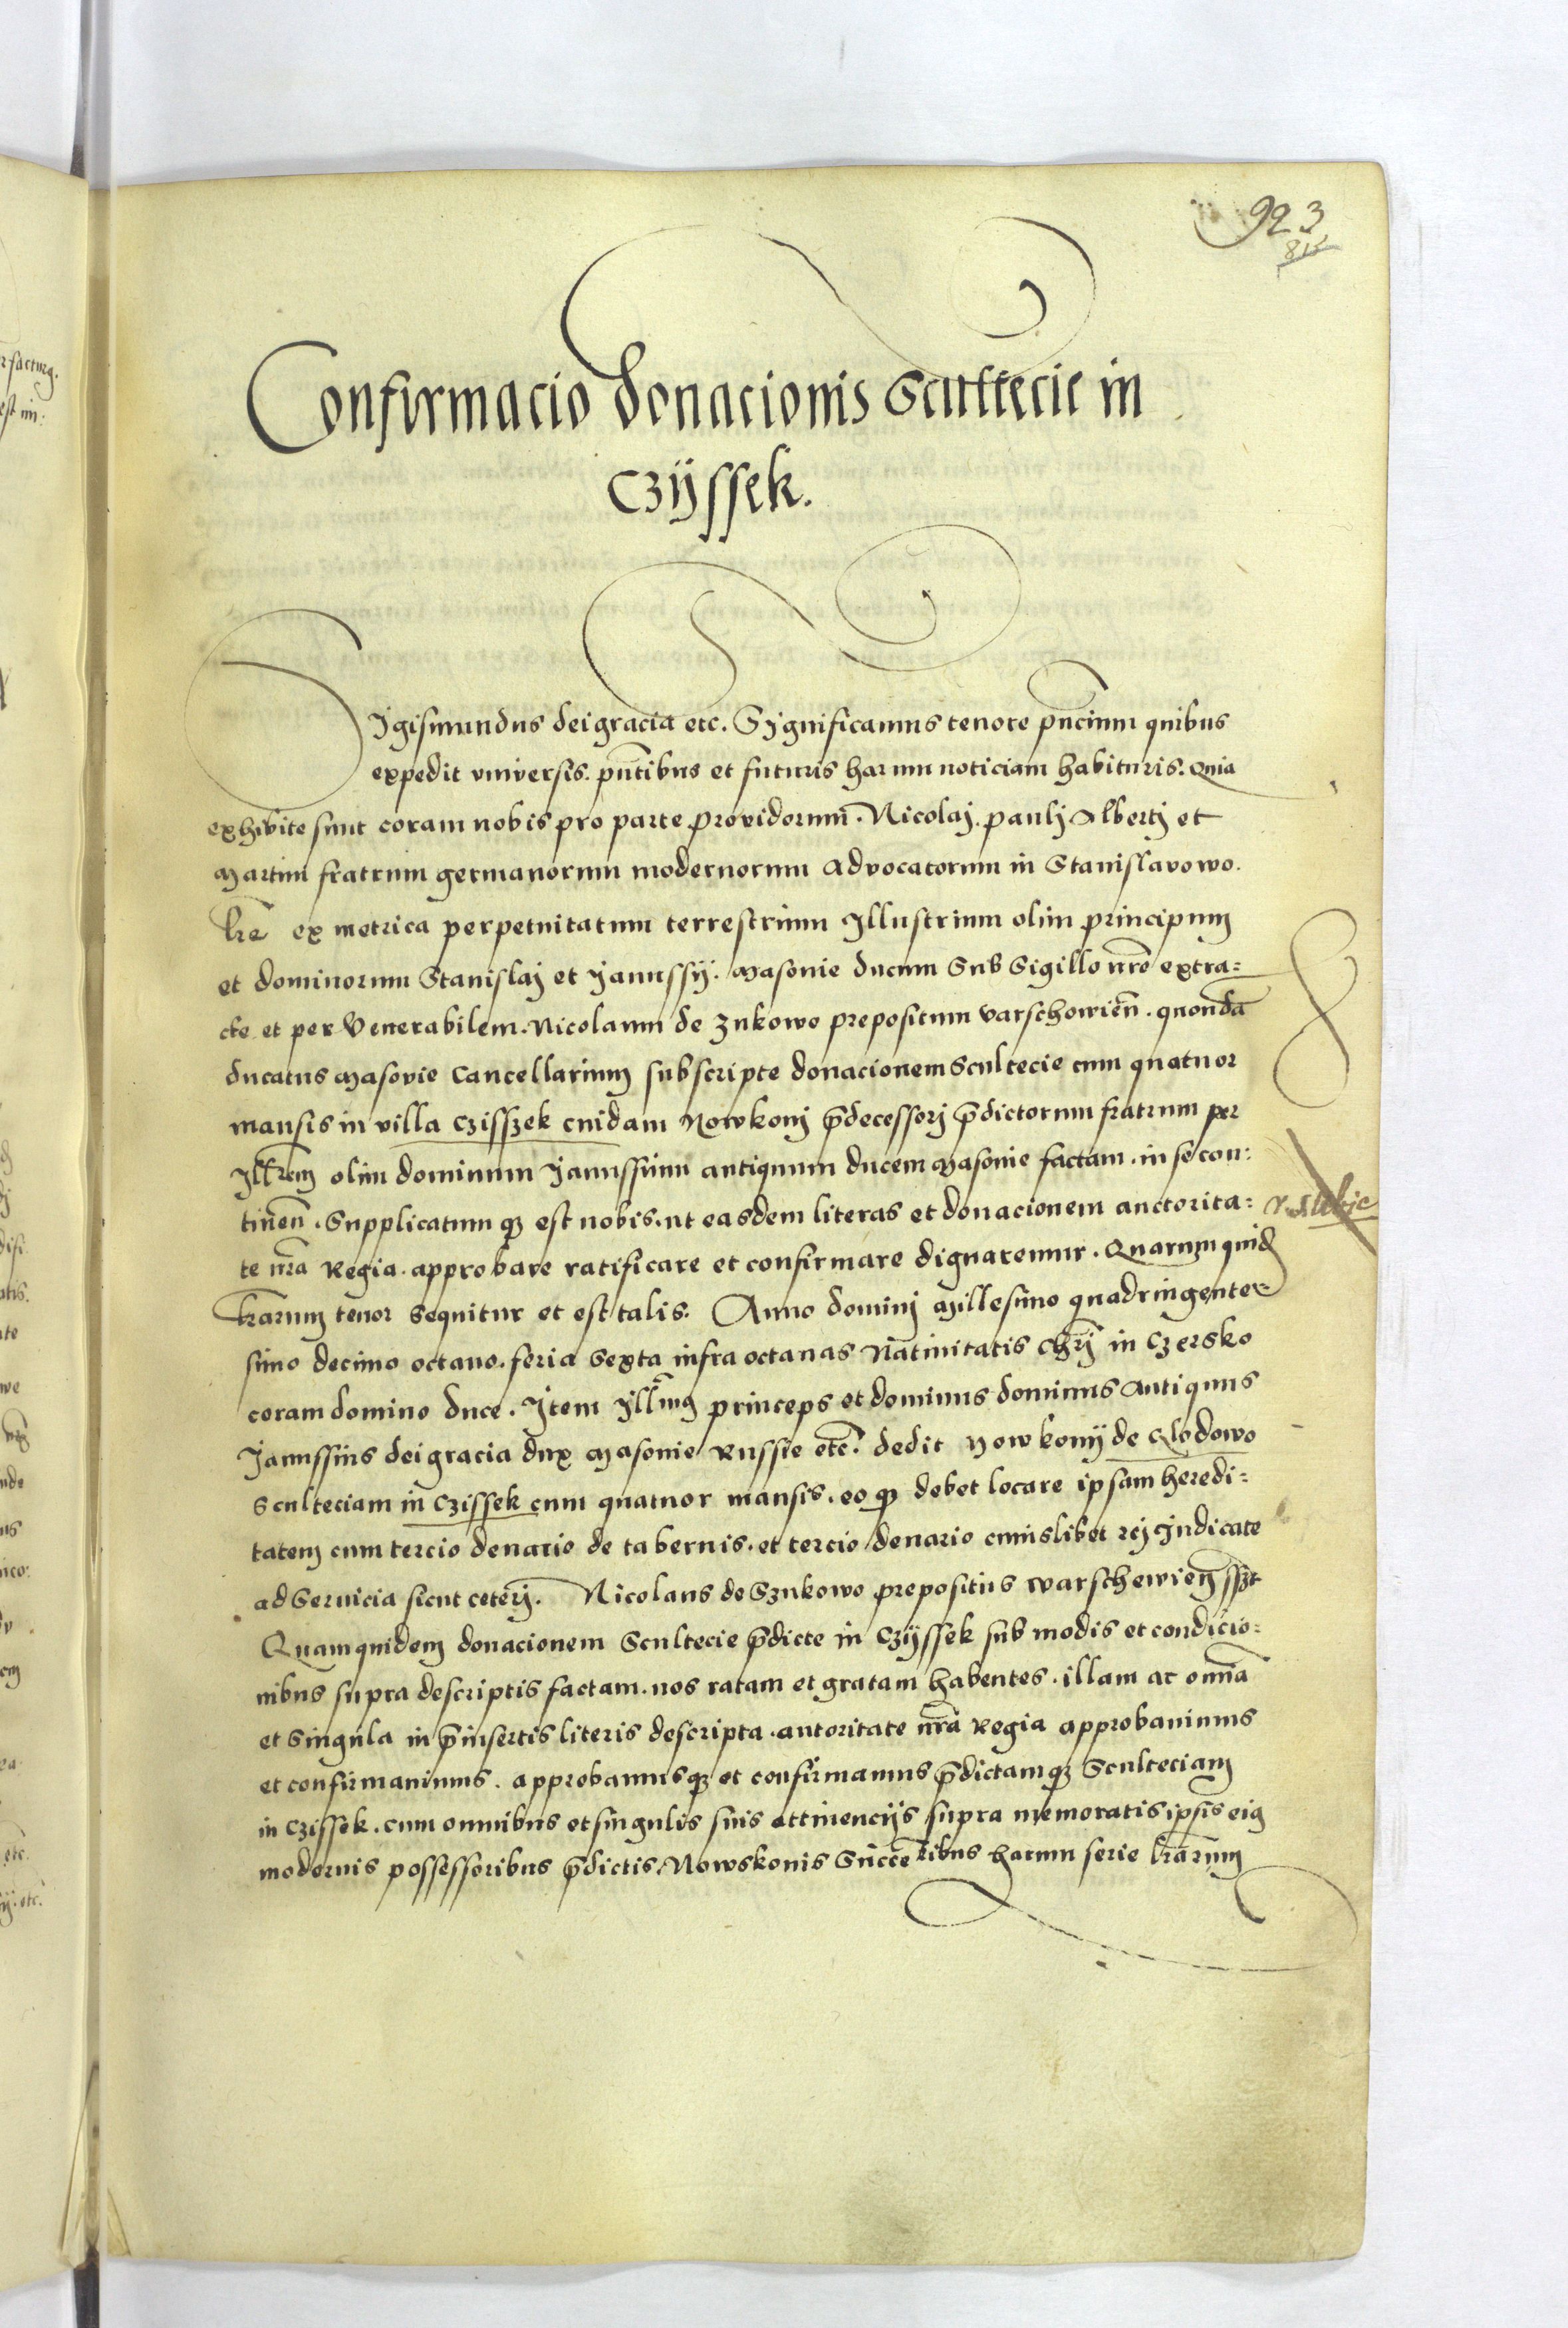 923
815
Confirmacio donacionis Scultecie in
Czÿssek.
Sigismundus dei gracia etc. Significamus tenore pn̄cium quibus
expedit vniversis. pn̄tibus et futuris harum noticiam habituris. Quia
exhibite sunt coram nobis pro parte providorum. Nicolaj. paulj Albertj et
Martini fratrum germanorum modernorum advocatorum in Stanislavowo.
lr̄e ex metrica perpetuitatum terrestrium Illustrium olim principum
et dominorum Stanislaj et Janussÿ. Masouie ducum Sub Sigillo nr̄o extra=
cte et per Venerabilem. Nicolaum de Zukowo prepositum varschowien̄. quondā
ducatus Masovie Cancellarium subscripte donacionem Scultecie cum quatuor
mansis in villa Czisszek cuidam Nowkonj p̄decessorj p̄dictorum fratrum per
Ill̄rem olim dominum Janussium antiquum ducem Masouie factam. in se con:
tinen̄. Supplicatumqꝫ est nobis. ut easdem literas et donacionem auctorita:
te nr̄a Regia. approbare ratificare et confirmare dignaremur. Quarum quid̄
lr̄arum tenor sequitur et est talis. Anno dominj Millesimo quadringente=
simo decimo octauo. feria sexta infra octauas Natiuitatis Chr̄j in Czersko
coram domino duce. Item Ill̄mus princeps et dominus dominus Antiquus
Janussius dei gracia dux Masouie Russie etc̄. dedit Nowkonÿ de Clodowo
Sculteciam in Czissek cum quatuor mansis. eo qꝫ debet locare ipsam heredi:
tatem cum tercio denario de tabernis. et tercio denario cuiuslibet rej Judicate
ad Seruicia sicut ceterj. Nicolaus de Szukowo prepositus Warschewien̄ sszt
Quamquidem donacionem Scultecie p̄dicte in Czÿssek sub modis et condicio:
nibus supra descriptis factam. nos ratam et gratam habentes. illam ac omnīa
et singula in p̄insertis literis descripta. autoritate nr̄a Regia approbauimus
et confirmauimus. approbamusqꝫ et confirmamus p̄dictamqꝫ Sculteciam
in Czissek. cum omnibus et singulis suis attinencÿs supra memoratis ipsis eius
modernis possessoribus p̄dictis Nowskonis Succe͞ribus harum serie lr̄arum